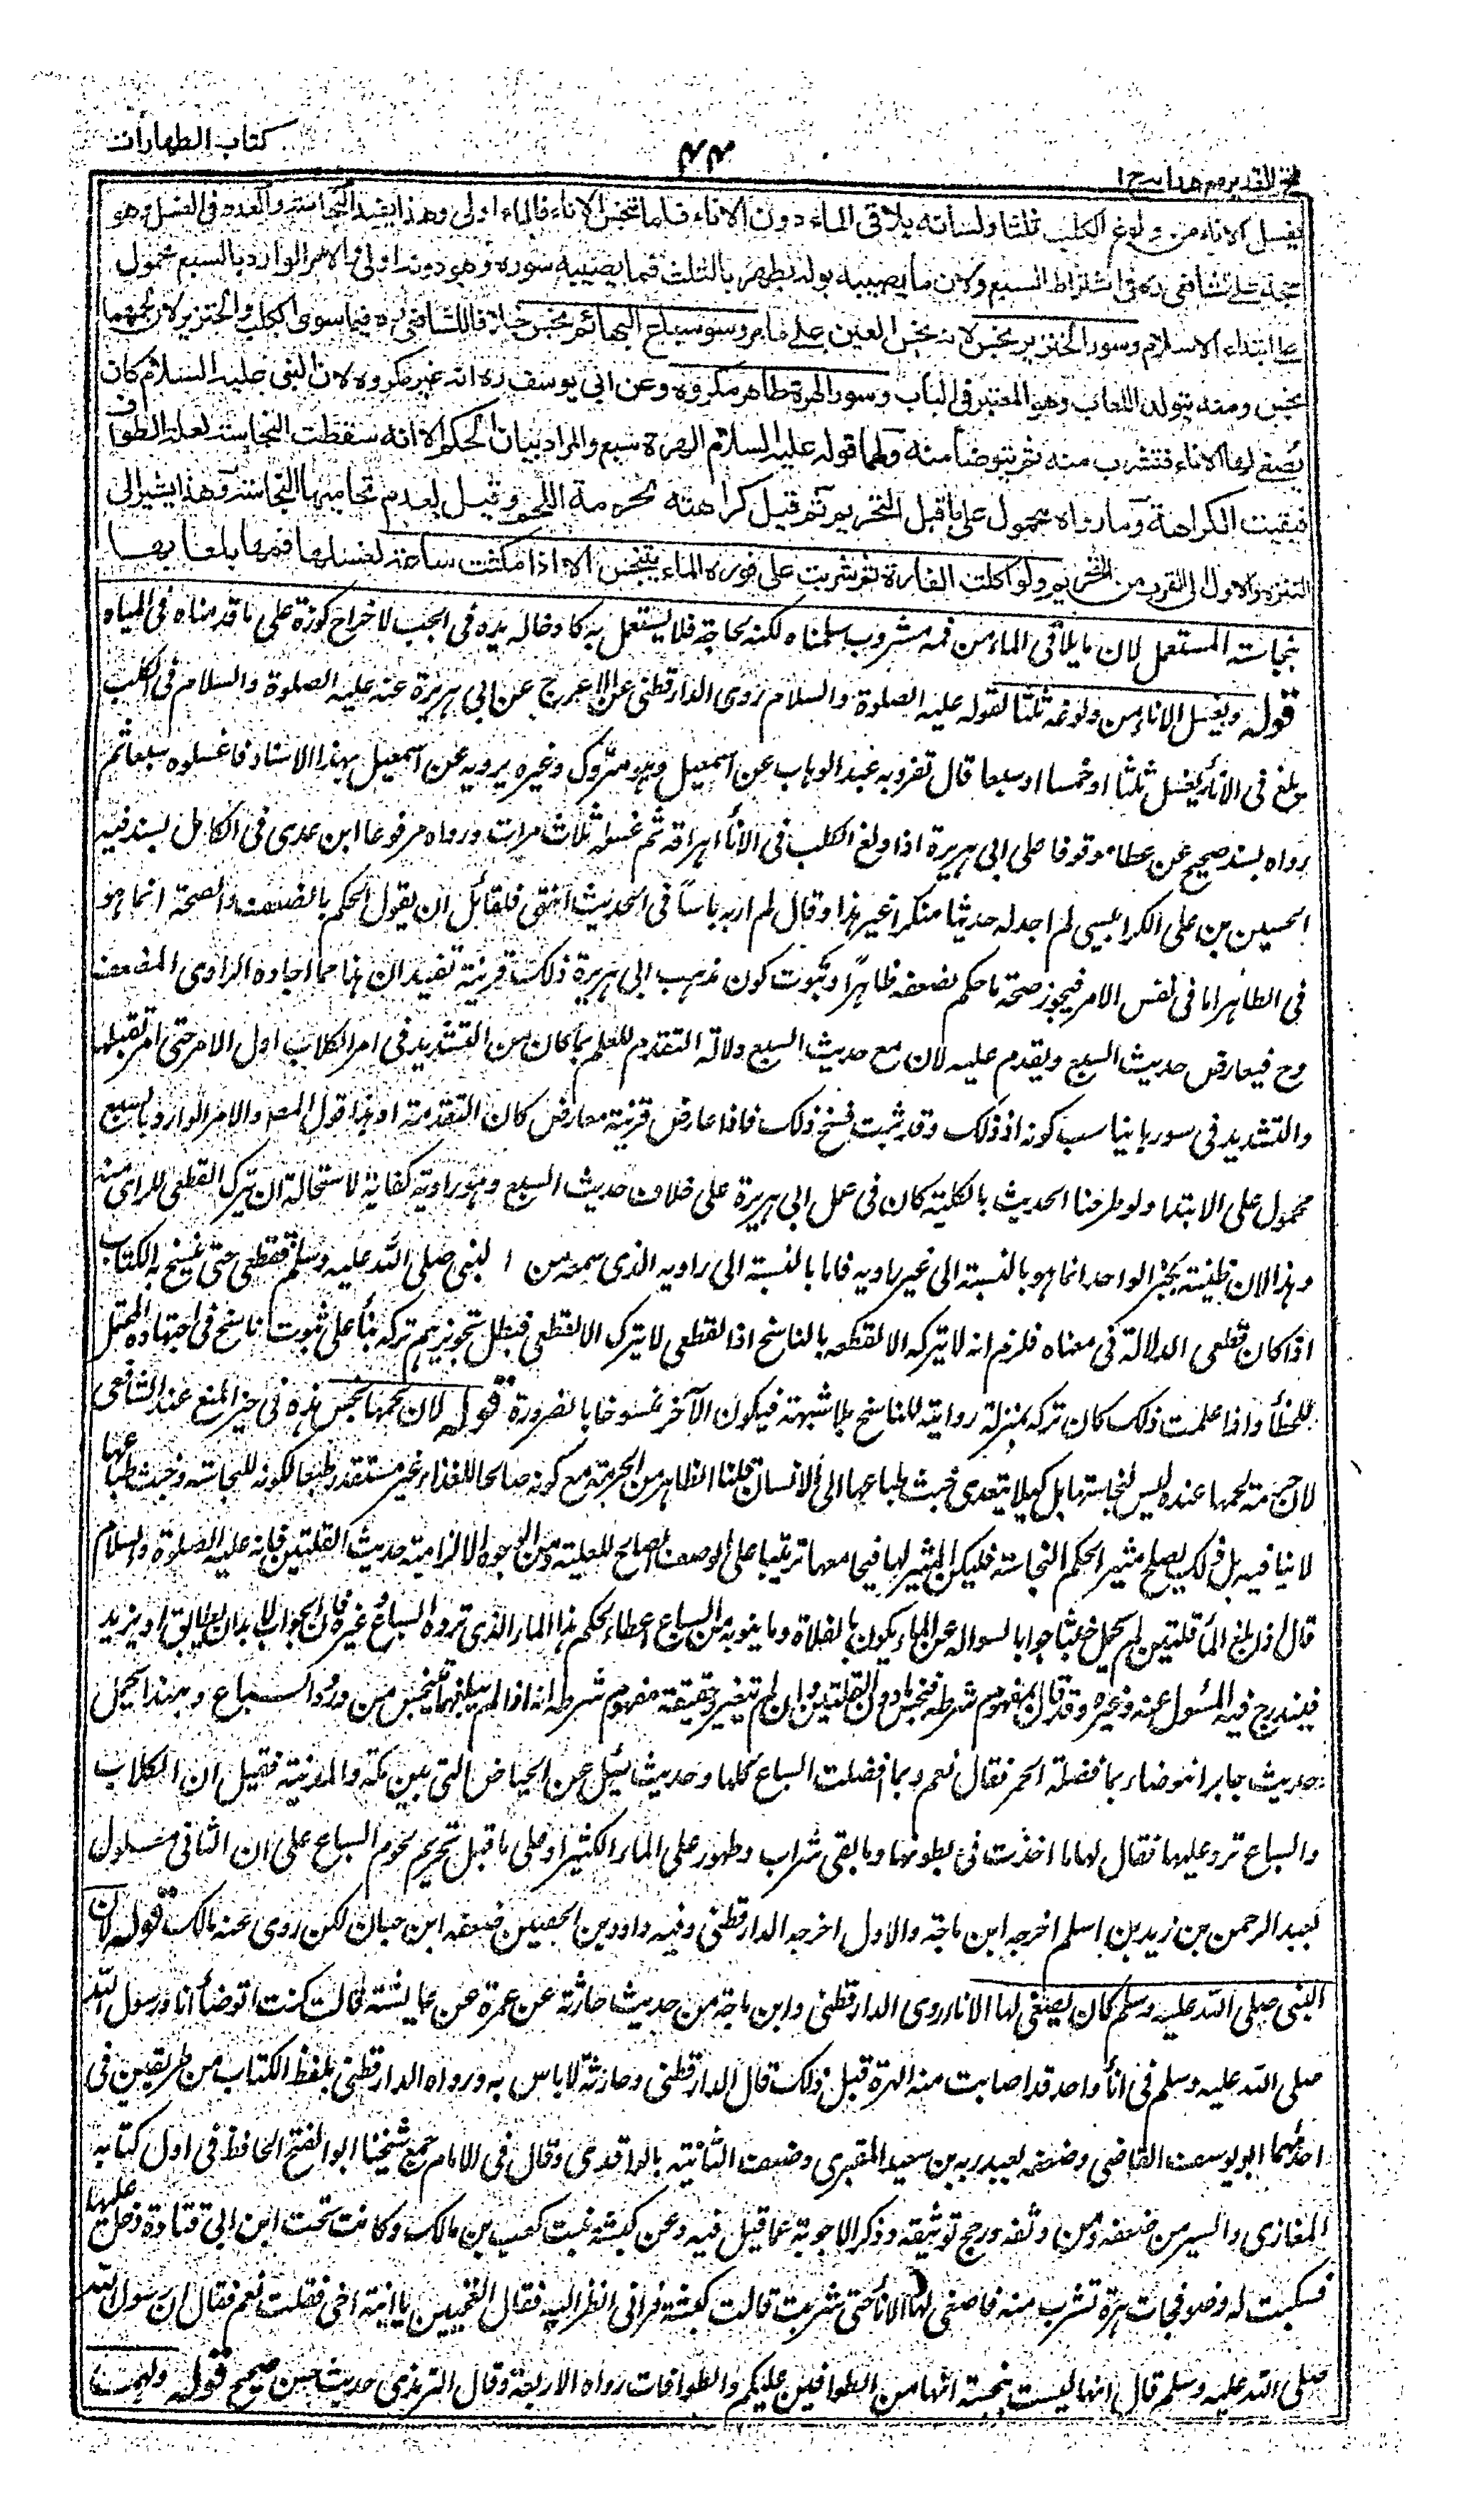 فتح القدير مع هداية ج ١
٤٤
كتاب الطهارات
يغسل الاناء من ولوغ الكلب ثلثا ولسانه يلاقى الماء دون الاناء فلما تنجس الاناء فالماء اولى وهذا يفيد النجاسة والعدد فى الغسل وهو
حجة على الشافعى ره فى اشتراط السبع ولان ما يصيبه بوله يطهر بالثلث فما يصيبه سوره وهو دونه اولى والامر الوارد بالسبع محمول
على ابتداء الاسلام وسور الخنزير نجس لانه نجس العين على ما مر وسور سباع البهائم نجس خلافا للشافعى ره فيما سوى الكلب والخنزير لان لحمها
نجس ومنه يتولد اللعاب وهو المعتبر فى الباب وسور الهرة طاهر مكروه وعن ابى يوسف ره انه غير مكروه لان النبى عليه السلام كان
يصغى لها الاناء فتشرب منه ثم يتوضأ منه ولهما قوله عليه السلام الهرة سبع والمراد بيان الحكم الا انه سقطت النجاسة لعلة الطواف
فبقيت الكراهة وما رواه محمول على ما قبل التحريم ثم قيل كراهته لحرمة اللحم وقيل لعدم تحاميها النجاسة وهذا يشير الى
التنزه والاول الى القرب من التحريم ولو اكلت الفارة ثم شربت على فوره الماء يتنجس الا اذا مكثت ساعة لغسلها فمها بلعابها
نجاسته المستعمل لان ما يلاقى الماء من فمه مشروب سلمناه لكنه لحاجة فلا يستعمل به كادخاله يده فى الجب لاخراج كوزه على ما قدمناه فى المياه
قوله ويغسل الاناء من ولوغه ثلثا لقوله عليه الصلوة والسلام روى الدارقطنى عن الاعرج عن ابى هريرة عنه عليه الصلوة والسلام فى الكلب
يلغ فى الاناء يغسل ثلثا او خمسا او سبعا قال تفرد به عبد الوهاب عن اسمعيل وهو متروك وغيره يرويه عن اسمعيل بهذا الاسناد فاغسلوه سبعا ثم
رواه بسند صحيح عن عطا موقوفا على ابى هريرة اذا ولغ الكلب فى الاناء اهراقه ثم غسله ثلاث مرات ورواه مرفوعا ابن عدى فى الكامل بسند فيه
الحسين بن على الكرابيسى لم اجد له حديثا منكرا غير هذا وقال لم ار به باسا فى الحديث انتهى فلقائل ان يقول الحكم بالضعف والصحة انما هو
فى الظاهر اما فى نفس الامر فيجوز صحة ما حكم بضعفه ظاهرا وثبوت كون مذهب ابى هريرة ذلك قرينة تفيد ان هذا مما اجاده الراوى المضعف
وح فيعارض حديث السبع ويقدم عليه لان مع حديث السبع دلالة التقدم للعلم بما كان من التشديد فى امر الكلاب اول الامر حتى امر بقتلها
والتشديد فى سورها يناسب كونه اذ ذلك وقد ثبت نسخ ذلك فاذا عارض قرينة معارض كان التقدمة له وهذا قول المصـ والامر الوارد بالسبع
محمول على الابتدا ولو طرحنا الحديث بالكلية كان فى عمل ابى هريرة على خلاف حديث السبع وهو راويه كفاية لاستحالة ان يترك القطعى للراى منه
وهذا لان ظنية خبر الواحد انما هو بالنسبة الى غير راويه فاما بالنسبة الى راويه الذى سمعه من النبى صلى الله عليه وسلم فقطعى حتى ينسخ به الكتاب
اذا كان قطعى الدلالة فى معناه فلزم انه لا يتركه الا لقطعه بالناسخ اذ القطعى لا يترك الا لقطعى فبطل تجويزهم تركه بناء على ثبوت ناسخ فى اجتهاده المحتمل
للخطأ واذا علمت ذلك كان تركه بمنزلة روايته للناسخ بلا شبهة فيكون الآخر منسوخا بالضرورة قوله لان لحمها نجس هذه فى حيز المنع عند الشافعى
لان حرمة لحمها عنده ليس لنجاستها بل كيلا يتعدى خبث طباعها الى الانسان قلنا الظاهر من الحرمة مع كونه صالحا للغذاء غير مستقذر طبعا لكونه للنجاسة وخبث طباعها
لا ينافيه بل ذلك يصلح مثيرا لحكم النجاسة فليكن المثير لها فيجامعها ترتيبا على الوصف الصالح للعلية ومن الوجوه الالزامية حديث القلتين فانه عليه الصلوة والسلام
قال اذا بلغ الماء قلتين لم يحمل خبثا جوابا لسواله عن الماء يكون بالفلاة وما ينوبه من السباع اعطاء لحكم هذا الماء الذى ترده السباع وغيره فان الجواب لا بد ان يطابق او يزيد
فيندرج فيه المسئول عنه وغيره وقد قال بمفهوم شرطه فنجس ما دون القلتين وان لم يتغير وحقيقة مفهوم شرطه انه اذا لم يبلغهما يتنجس من ورود السباع وبهذا يحمل
حديث جابر انتوضاء بما فضلة الحمر فقال نعم وبما افضلت السباع كلها وحديث سئل عن الحياض التى بين مكة والمدينة فقيل ان الكلاب
والسباع ترد عليها فقال لها ما اخذت فى بطونها وما بقى شراب وطهور على الماء الكثير او على ما قبل تحريم لحوم السباع على ان الثانى معلول
بعبد الرحمن بن زيد بن اسلم اخرجه ابن ماجة والاول اخرجه الدارقطنى وفيه داود بن الحصين ضعفه ابن حبان لكن روى عنه مالك قوله لان
النبى صلى الله عليه وسلم كان يصغى لها الاناء روى الدارقطنى وابن ماجة من حديث حارثة عن عمرة عن عايشة قالت كنت اتوضأ انا ورسول الله
صلى الله عليه وسلم فى اناء واحد قد اصابت منه الهرة قبل ذلك قال الدارقطنى وحارثة لا باس به ورواه الدارقطنى بلفظ الكتاب من طريقين فى
احدهما ابو يوسف القاضى وضعفه لعبد ربه بن سعيد المقبرى وضعف الثانية بالواقدى وقال فى الامام جمع شيخنا ابو الفتح الحافظ فى اول كتابه
المغازى والسير من ضعفه ومن وثقه ورجح توثيقه وذكر الاجوبة عما قيل فيه وعن كبشة بنت كعب بن مالك وكانت تحت ابن ابى قتادة دخل عليها
فسكبت له وضوء فجاءت هرة تشرب منه فاصغى لها الاناء حتى شربت قالت كبشة فرانى انظر اليه فقال اتعجبين يا ابنة اخى فقلت نعم فقال ان رسول الله
صلى الله عليه وسلم قال انها ليست بنجسة انها من الطوافين عليكم والطوافات رواه الاربعة وقال الترمذى حديث حسن صحيح قوله ولهما